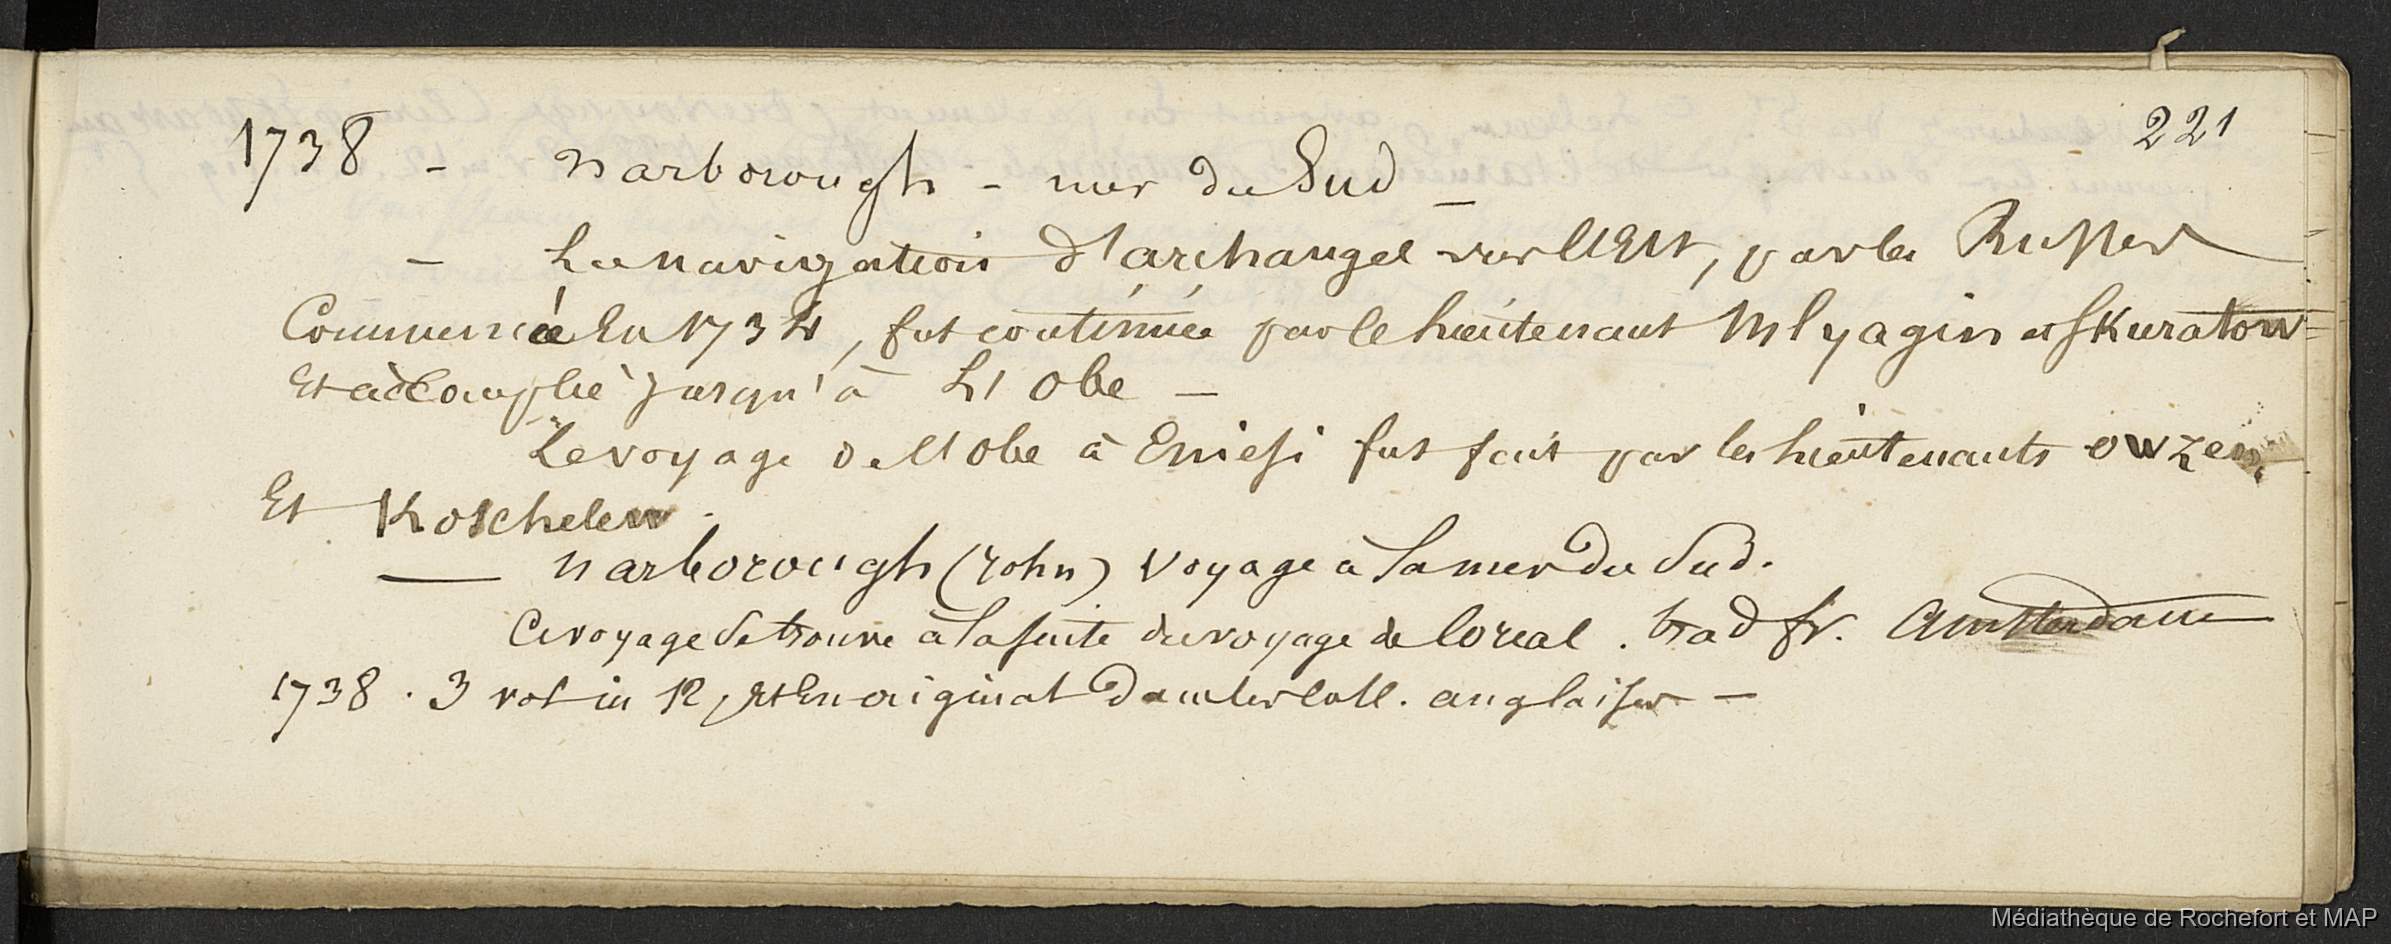 221
1738 - Narborough - mer du Sud -
- La navigation d'archangel vers l'Est, par les Russes
Commencée En 1734, fut continuée par le lieutenant Mlyagin et Skuratow
Et accomplie jusqu'à L'Obe -
Le voyage de l'Obe à Eniesi fut fait par les lieutenants owzen,
Et Koschelew.
- Narborough (John) Voyage à la mer du Sud.
Ce voyage se trouve à la suite du voyage de Coreal. trad fr. Amsterdam
1738. 3 vol in 12, Et En original dans les coll. anglaises -
Médiathèque de Rochefort et MAP